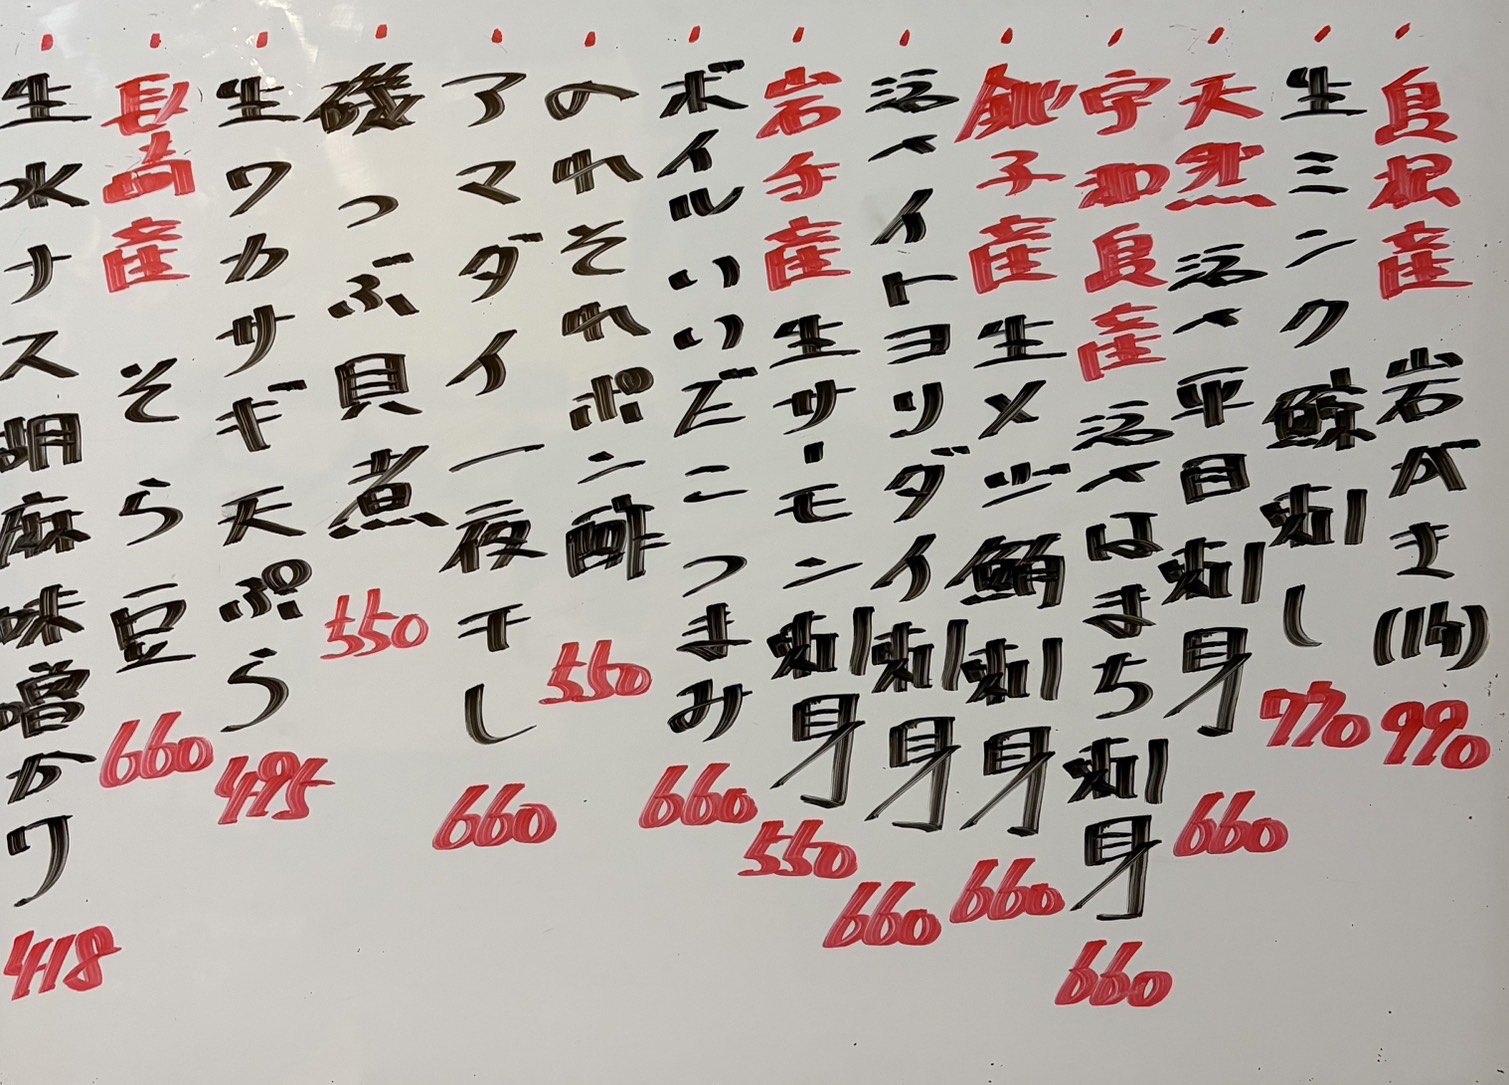 島根産 岩ガキ(1ケ) 990
生ミンク鯨刺し 770
天然活〆平目刺身 660
宇和島産活〆はまち刺身 660
銚子産生メジ鮪刺身 660
活〆イトヨリダイ刺身 660
岩手産生サーモン刺身 550
ボイルいいだこつまみ 660
のれそれポン酢 550
アマダイ一夜干し 660
磯つぶ貝煮 550
生ワカサギ天ぷら 495
長崎産 そら豆 660
生水ナス胡麻味噌 418